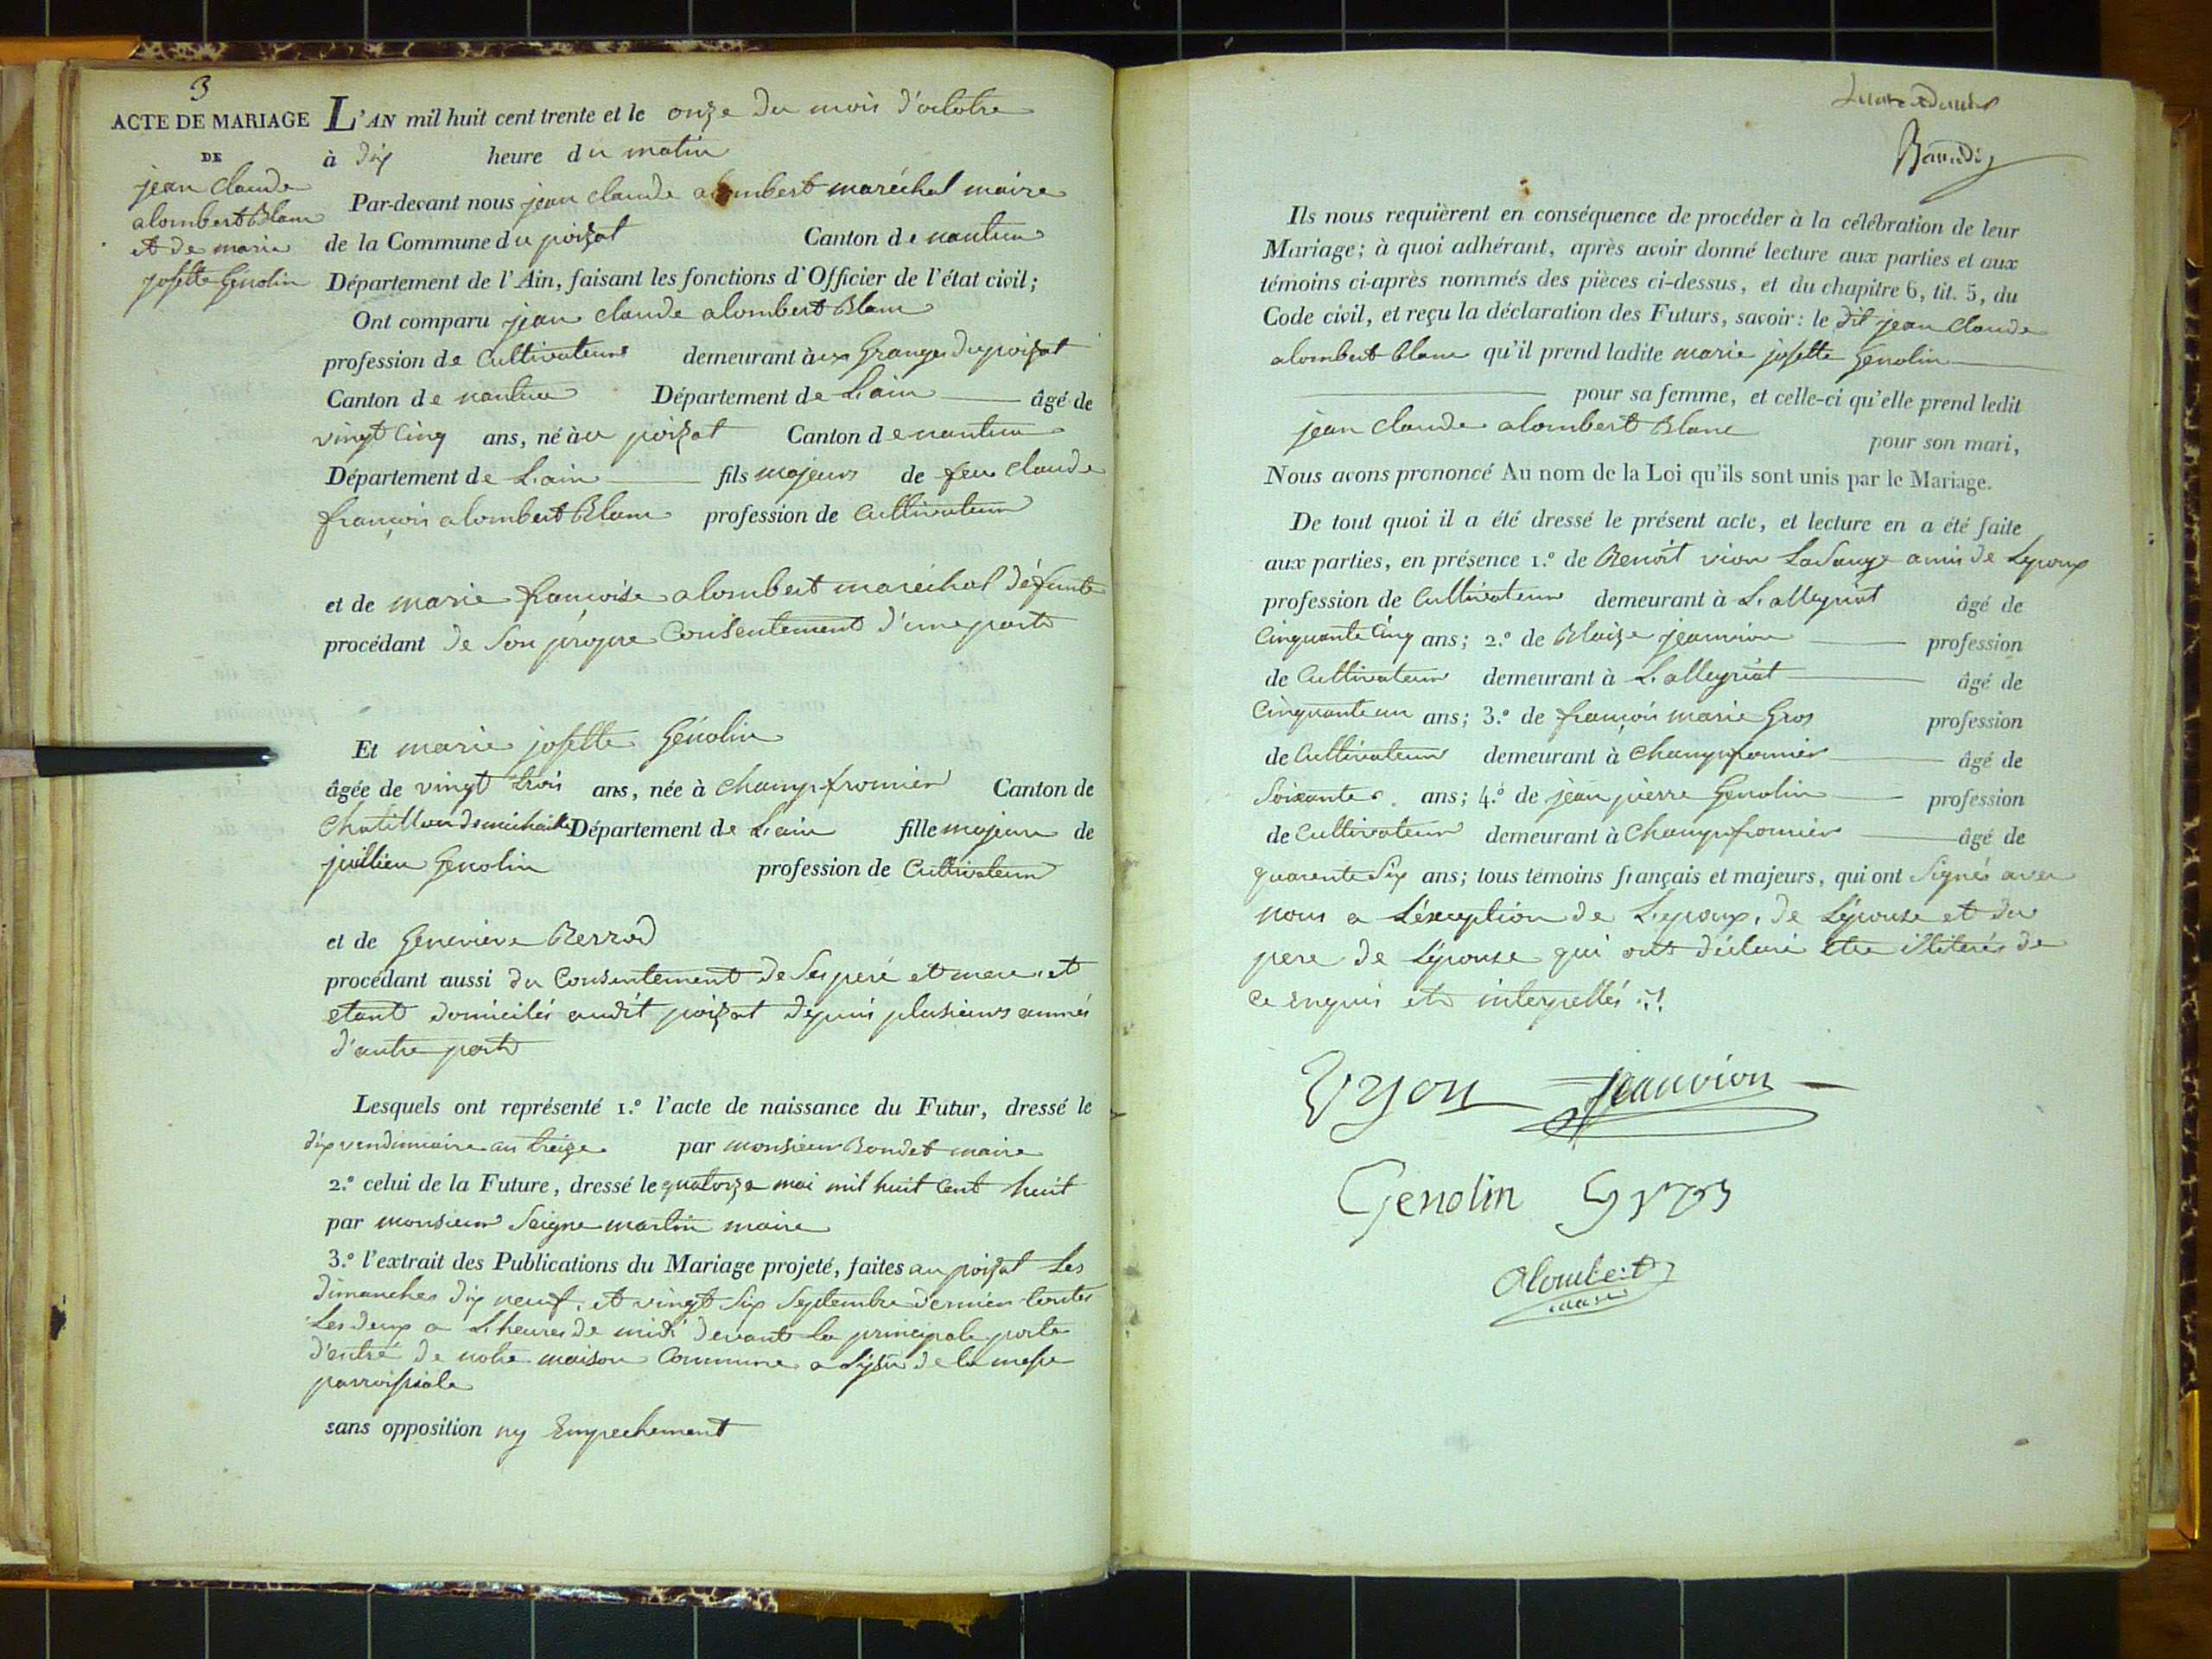 3
ACTE DE MARIAGE
DE
jean claude
alombert Blanc
et de marie
josette Génolin
L'AN mil huit cent trente et le onze du mois d'octobre
à dix heure du matin
Par-devant nous jean claude alombert maréchal maire
de la Commune du poizat Canton de nantua
Département de l'Ain, faisant les fonctions d'Officier de l'état civil;
Ont comparu jean claude alombert Blanc
profession de Cultivateur demeurant aux Granges du poizat
Canton de nantua Département de L'ain âgé de
vingt Cinq ans, né àu poizat Canton de nantua
Département de L'ain fils majeur de feu Claude
françois alombert Blanc profession de Cultivateur
et de marie françoise alombert maréchal défunte
procédant de Son propre Consentement d'une part
Et marie josette Génolin
âgée de vingt trois ans, née à Champfromier Canton de
Chatillon de michaille Département de L'ain fille majeure de
juillien Genolin profession de Cultivateur
et de Geneviève Berrod
procédant aussi du Consentement de Ses peré et mere et
etant domiciliés audit poizat depuis plusieurs années
d'autre part
Lesquels ont représenté 1.º l'acte de naissance du Futur, dressé le
dix vendimiaire an treize par monsieur Boudet maire
2.º celui de la Future, dressé le quatorze mai mil huit Cent huit
par monsieur Seigne martin maire
3.º l'extrait des Publications du Mariage projeté, faites au poizat Les
dimanches dix neuf et vingt Six Septembre dernier toutes
Les deux a L'heures de midi devant La principale porte
d'entré de notre maison Commune a de la messe
parroissiale
sans opposition ny Empechement
Baudi
Ils nous requièrent en conséquence de procéder à la célébration de leur
Mariage; à quoi adhérant, après avoir donné lecture aux parties et aux
témoins ci-après nommés des pièces ci-dessus, et du chapitre 6, tit. 5, du
Code civil, et reçu la déclaration des Futurs, savoir: le dit jean Claude
alombert blanc qu'il prend ladite marie josette Genolin
pour sa femme, et celle-ci qu'elle prend ledit
jean Claude alombert Blanc pour son mari,
Nous avons prononcé Au nom de la Loi qu'ils sont unis par le Mariage.
De tout quoi il a été dressé le présent acte, et lecture en a été faite
aux parties, en présence 1.º de Benoit vion Lasauge amis de Lepoux
profession de Cultivateur demeurant à L'alleyriat âgé de
Cinquante Cinq ans; 2.º de Blaize jeanvion profession
de Cultivateur demeurant à L'alleyriat âgé de
Cinquante un ans; 3.º de françois marie Gros profession
de Cultivateur demeurant à Champfromier âgé de
Soixante ans; 4.º de jean pierre Genolin profession
de Cultivateur demeurant à Champfromier âgé de
quarente Six ans; tous témoins français et majeurs, qui ont Signés avec
nous a L'éxception de L'epoux, de L'épouse et du
pere de L'épouse qui ont déclaré être illiterés de
ce enquis et interpellés
Vyon Jeanvion
Genolin Gros
Alombert
maire